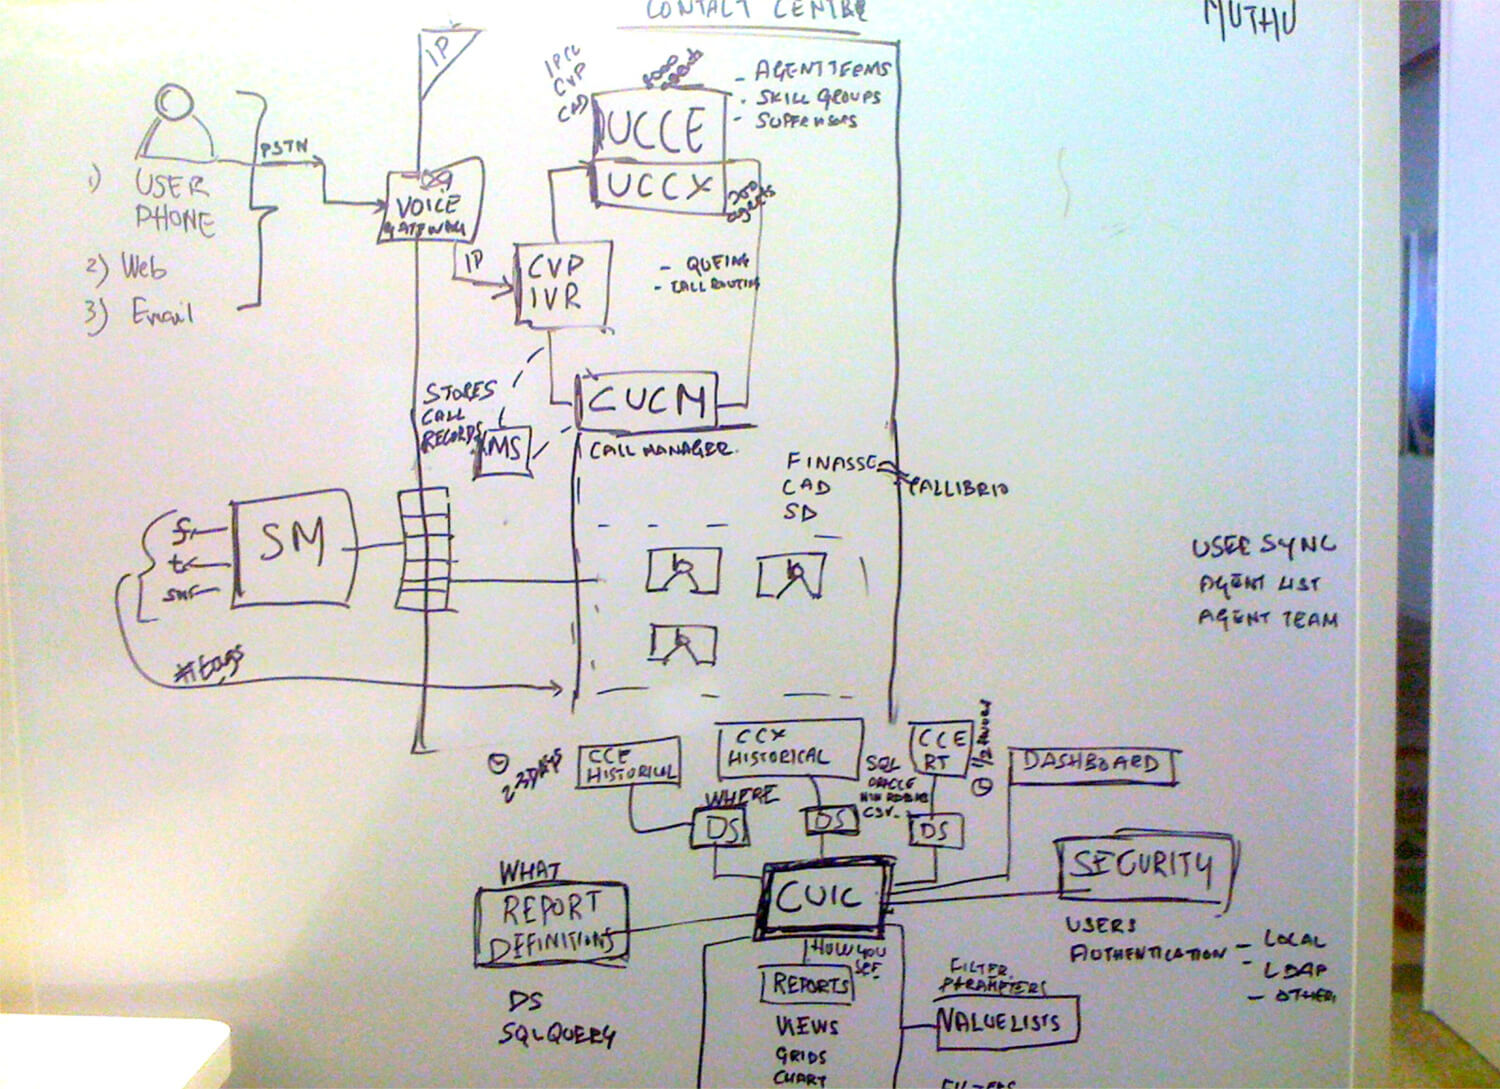 CONTACT CENTRE
MUTHU
IP
IPCC
CVP
CAD
8000
agents
- AGENT TEEMS
- SKILL GROUPS
- SUPERVISORS
UCCE
UCCX
agents
PSTN
1) USER
PHONE
2) Web
3) Email
VOICE
GATEWAY
IP
CVP
IVR
- QUEING
- CALL ROUTING
STORES
CALL
RECORDS
MS
CUCM
CALL MANAGER
FINASSE
CAD
SD
CALLIBRIO
SM
f
t
#tags
USER SYNC
AGENT LIST
AGENT TEAM
2-3 DAYS
CCE
HISTORICAL
CCX
HISTORICAL
SQL
ORACLE
CSV
CCE
RT
1/2 HOURS
DASHBOARD
WHERE
DS
DS
DS
WHAT
REPORT
DEFINITIONS
DS
SQL QUERY
CUIC
HOW YOU
SEE
REPORTS
VIEWS
GRIDS
CHART
SECURITY
USERS
AUTHENTICATION
- LOCAL
- LDAP
- OTHER
FILTER
PARAMETERS
VALUE LISTS
FILTERS